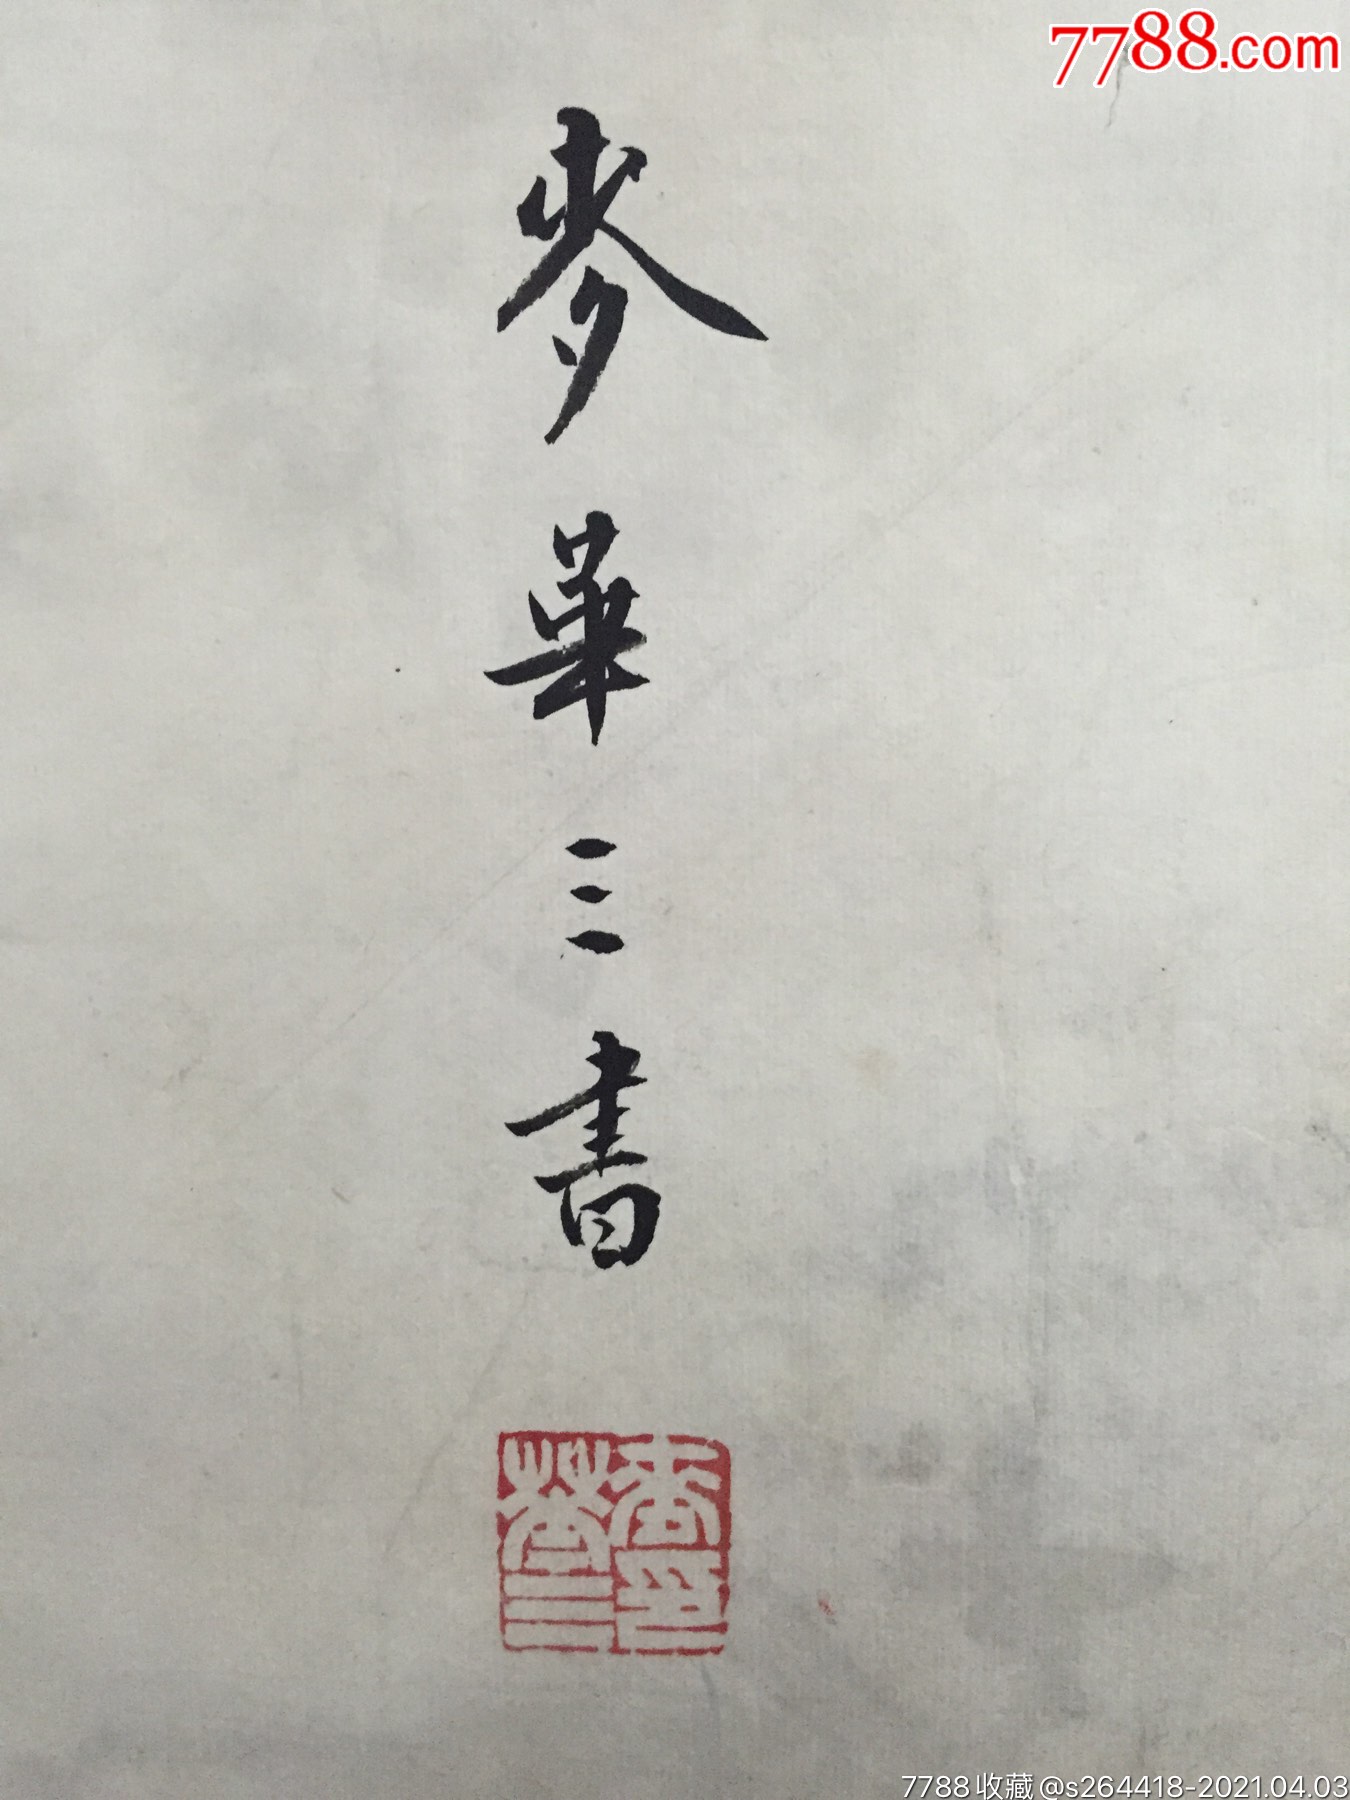 7788.com
麥華三書
麥華三印
7788收藏@s264418-2021.04.03